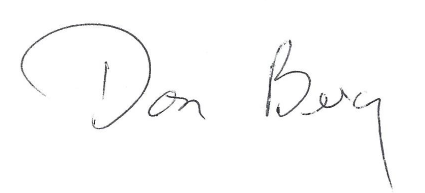 Don Berg